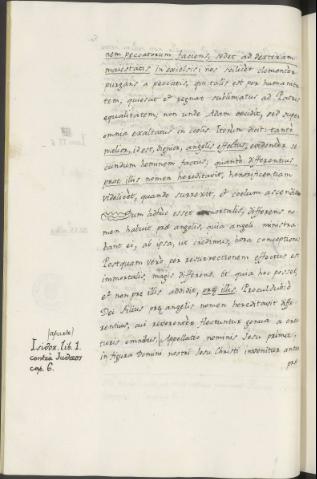 nem peccatorum faciens, sedet ad dexteram
maiestatis in excelsis: nos scilicet clementer
purgans a peccatis, qui talis est per humanita
tem, quievit et regnat sublimatus ad Patris
equalitatem, non unde Adam cecidit, sed super
omnia exaltatus in coelis. Iterum dicit: tanto
melior, id est, dignior, angelis effectus, evidenter se
cundum hominem factus, quanto differentius
prae illis nomen hereditavit, honorificentiam
videlicet, quando surrexit, et coelum ascendit
Dum adhuc esset mortalis, differens no
men habuit prae angelis, quia angeli ministra
bant ei, ab ipsa, ut credimus, hora conceptionis
Postquam verò per resurrectionem effectus est
immortalis, magis differens. Et quia hoc posset,
et non prae illis addidit, prae illis. Procul dubiò
Dei filius prae angelis nomen hereditavit diffe
rentius, cui reverenter flectuntur genua a crea
turis omnibus. Appellatio nominis Jesu primum
in figura Domini nostri Jesu Christi invenitur ante
Isidor. lib. 1.
contra Judaeos
cap. 6.